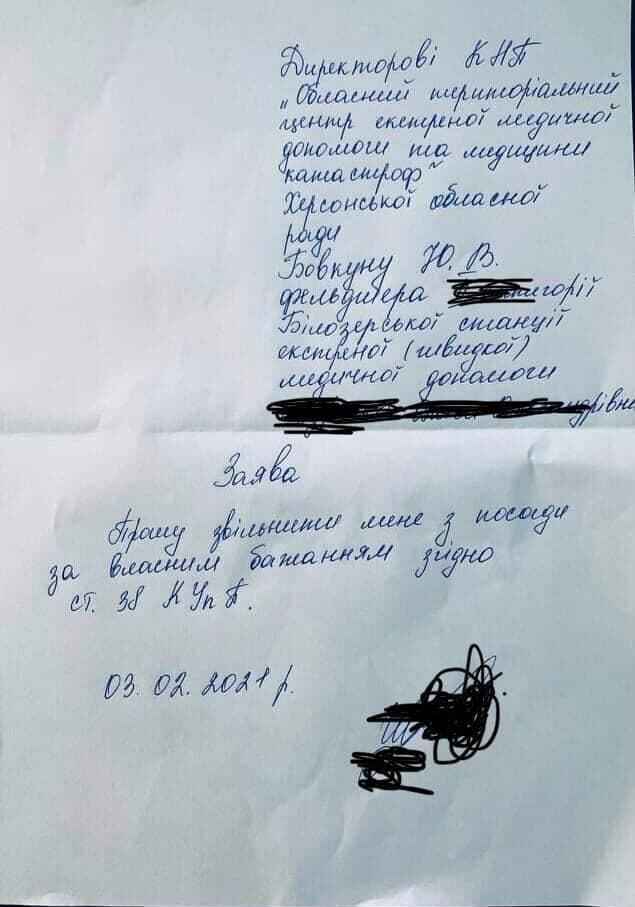 Директорові КНП
„Обласний територіальний
центр екстреної медичної
допомоги та медицини
катастроф"
Херсонської обласної
ради
Бовкуну Ю. В.
фельдшера
Білозерської станції
екстреної (швидкої)
медичної допомоги
Заява
Прошу звільнити мене з посади
за власним бажанням згідно
ст. 38 КУпП.
03. 02. 2021 р.